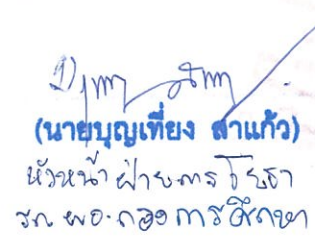 (นายบุญเที่ยง ลำแก้ว)
หัวหน้าฝ่ายการโยธา
รก. ผอ. กองการศึกษา